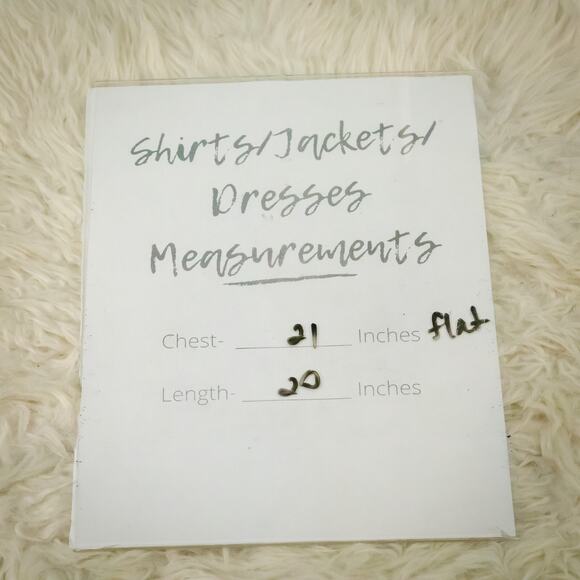 Shirts/Jackets/
Dresses
Measurements
Chest- 21 Inches flat
Length- 20 Inches